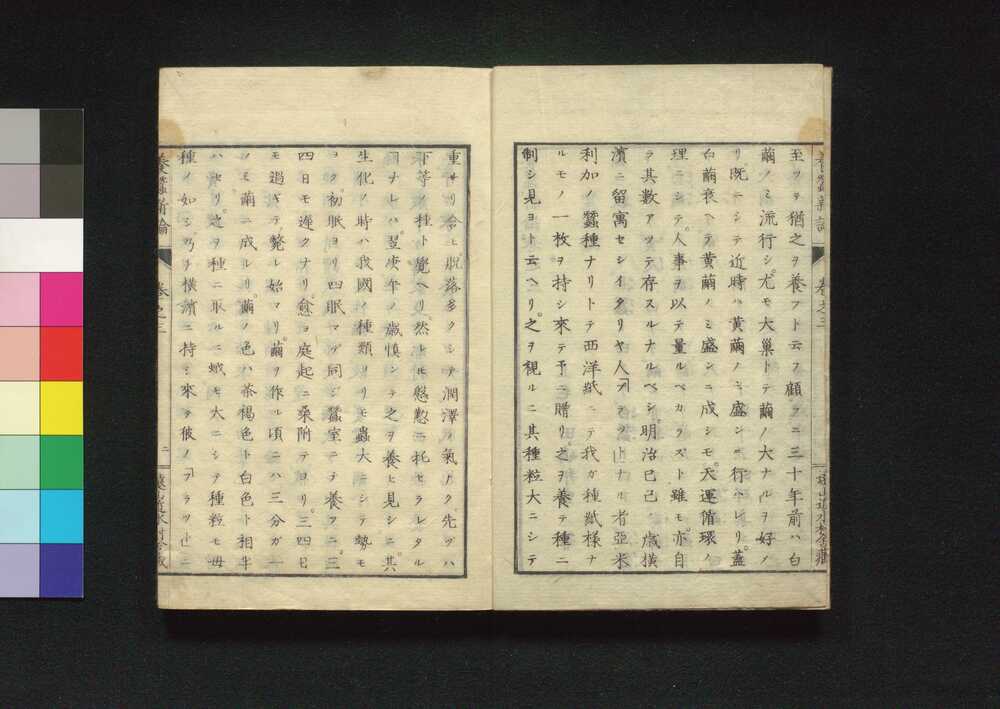 至ツヲ猶之ヲ養フト云フ顧フニ三十年前ハ白
繭ノミ流行シ尤モ大巣トテ繭ノ大ナルヲ好ノ
リ既ニシテ近時ハ黄繭ノミ盛ンニ行ハレリ蓋
白繭衰ヘテ黄繭ノミ盛ンニ成シモ天運循環ノ
理ニシテ人事ヲ以テ量ルベカラズト雖モ亦自
ラ其數アツテ存スルナルベシ明治己巳ノ歳横
濱ニ留寓セシイタリヤ人アラツ止ナル者亞米
利加ノ蠶種ナリトテ西洋紙ニテ我ガ種紙樣ナ
ルモノ一枚ヲ持シ來テ予ニ贈リ之ヲ養テ種ニ
制シ見ヨト云ヘリ之ヲ視ルニ其種粒大ニシテ
養蠶新論 卷之三 二
重ナリ合ヒ脱落多クシテ潤澤ノ氣ナク先ヅハ
下等ノ種ト覺ヘリ然レトモ慇懃ニ托セラレタル
ナレハ翌庚午ノ歳慎シテ之ヲ養ヒ見シニ其
生化ノ時ハ我國ノ種類ヨリモ蟲大ニシテ勢モ
ヨク初眠ヨリ四眠マデ同ジ蠶室ニテ養フニ三
四日モ遲クナリ愈ヨ庭起ニ桑附テヨリ三四日
モ過ギテ斃レ始マリ繭ヲ作ル頃ニハ三分ガ一
ノミ繭ニ成ルリ繭ノ色ハ茶褐色ト白色ト相半
ハセリ之ヲ種ニ取ルニ蛾モ大ニシテ種粒モ毎
種ノ如シ乃チ横濱ニ持ミ來ヲ彼ノアラツ止ニ